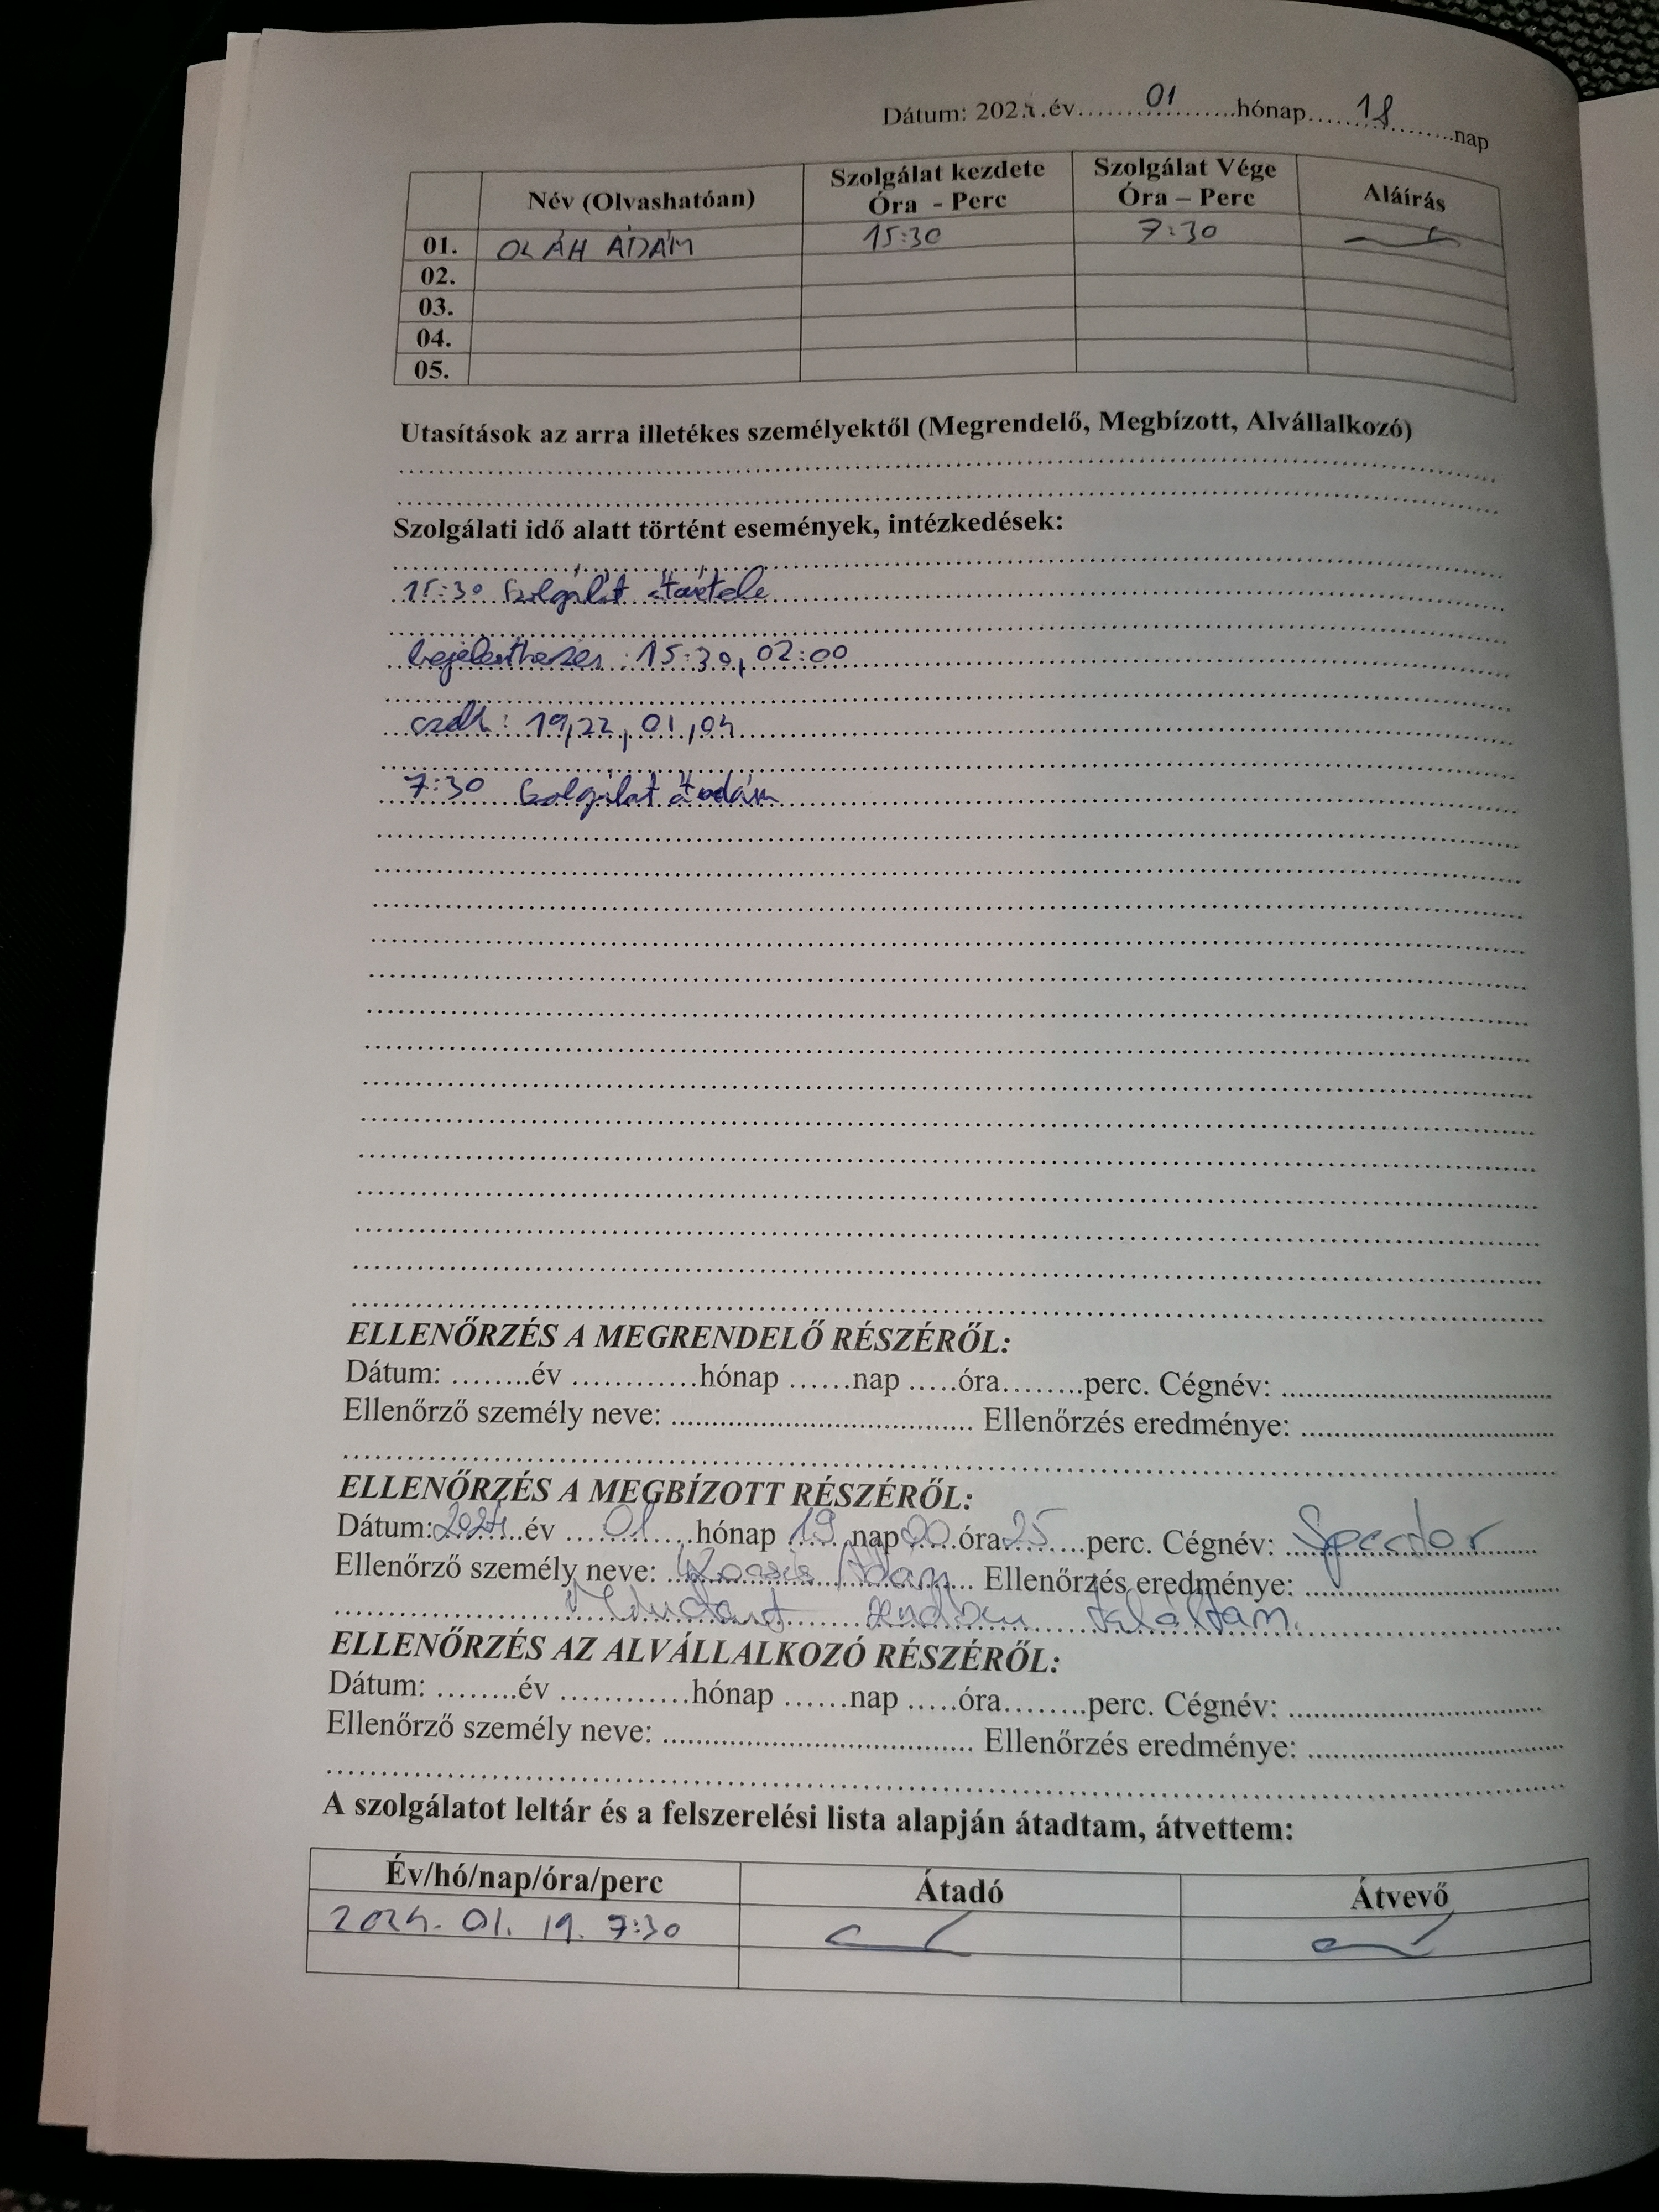 Dátum: 202 .év....................01..................hónap.........18..............nap
Név (Olvashatóan) Szolgálat kezdete Óra - Perc Szolgálat Vége Óra – Perc Aláírás
01. OLÁH ÁDÁM 15:30 7:30
02.
03.
04.
05.
Utasítások az arra illetékes személyektől (Megrendelő, Megbízott, Alvállalkozó)
Szolgálati idő alatt történt események, intézkedések:
15:30 Szolgálat átvétele
bejelentkezés: 15:30, 02:00
19,22, 01,04
7:30 Szolgálat átadás
ELLENŐRZÉS A MEGRENDELŐ RÉSZÉRŐL:
Dátum: ........év ............hónap ......nap .....óra........perc. Cégnév: ................................
Ellenőrző személy neve: .................................... Ellenőrzés eredménye: ..............................
ELLENŐRZÉS A MEGBÍZOTT RÉSZÉRŐL:
Dátum: 2024 év 01 hónap 19 nap 00 óra 25 perc. Cégnév:
Ellenőrző személy neve: Kocsis Ádám Ellenőrzés eredménye:
Mindent rendben találtam.
ELLENŐRZÉS AZ ALVÁLLALKOZÓ RÉSZÉRŐL:
Dátum: ........év ............hónap ......nap .....óra........perc. Cégnév: ..............................
Ellenőrző személy neve: ..................................... Ellenőrzés eredménye: ..............................
A szolgálatot leltár és a felszerelési lista alapján átadtam, átvettem:
Év/hó/nap/óra/perc Átadó Átvevő
2024. 01. 19. 7:30